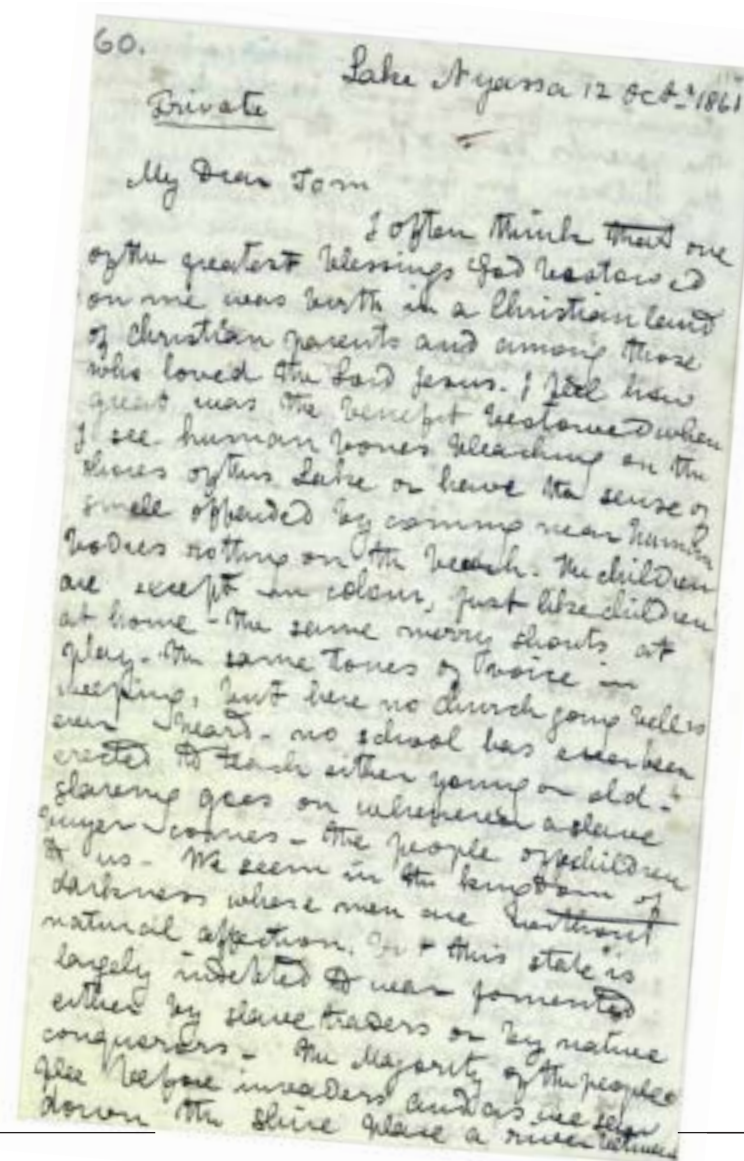 60.
Lake Nyassa 12 Octr 1861
Private
My Dear Tom
I often think that one
of the greatest blessings God bestowed
on me was birth in a Christian land
of Christian parents and among those
who loved the Lord Jesus. I feel how
great was the benefit bestowed when
I see human bones bleaching on the
shores of this Lake or have the sense of
smell offended by coming near human
bodies rotting on the beach. The children
are except in colour, just like children
at home - the same merry shouts at
play - the same tones of voice in
weeping, but here no church going bell is
ever heard - no school has ever been
erected to teach either young or old -
slaving goes on whenever a slave
buyer comes - the people children
to us - We seem in the kingdom of
darkness where men are without
natural affection. this state is
largely indebted to war fomented
either by slave traders or by native
conquerors - The Majority of the people
flee before invaders and as we
down the Shire place a river between